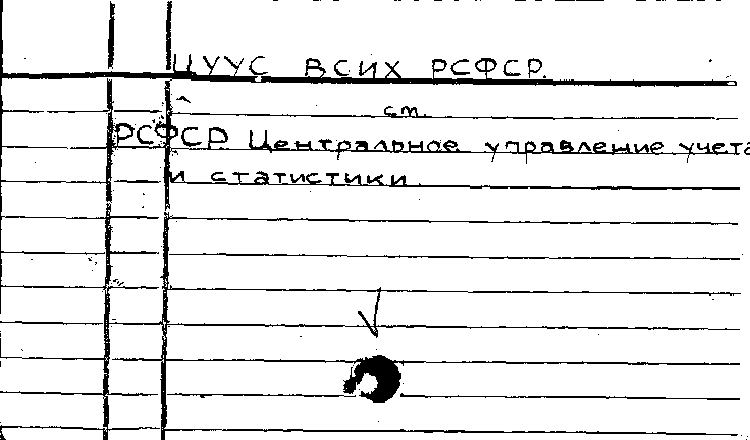 ЦУУС ВСИХ РСФСР.
ст.
РСФСР Центральное управление учета
и статистики.